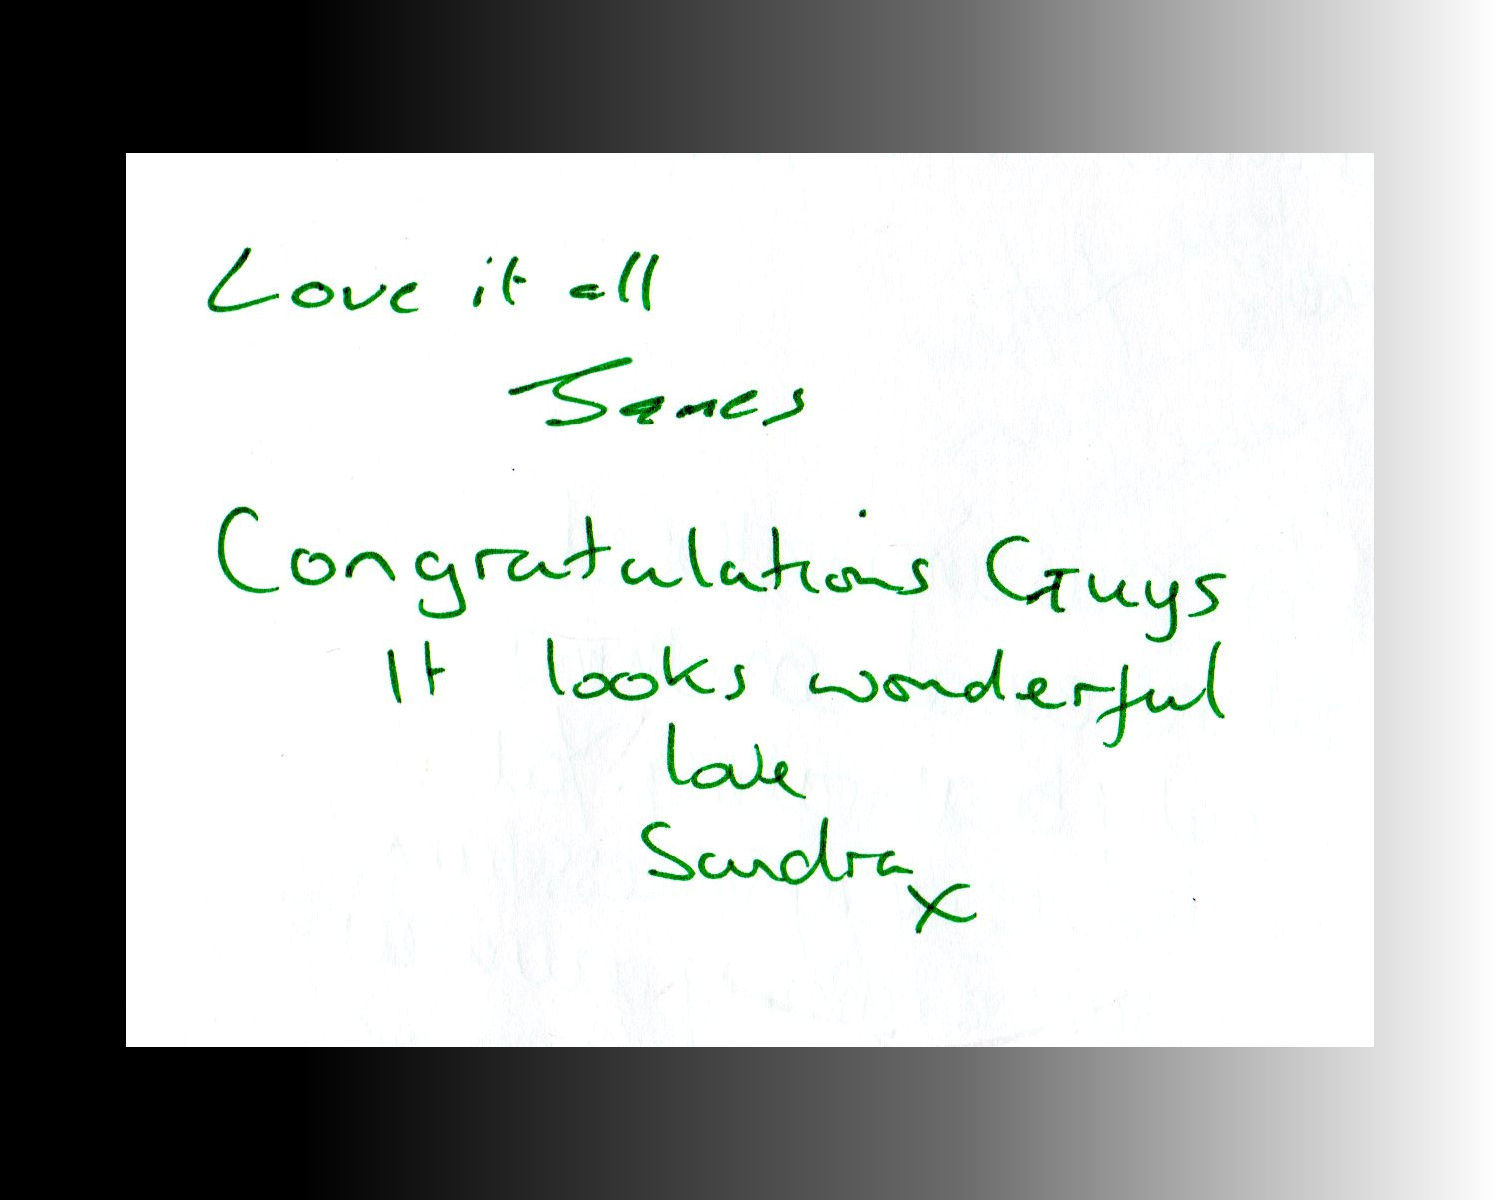 Love it all
James
Congratulations Guys
It looks wonderful
love
Sandra x